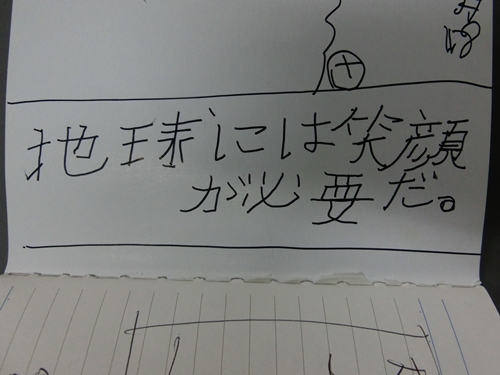 地球には笑顔
が必要だ。